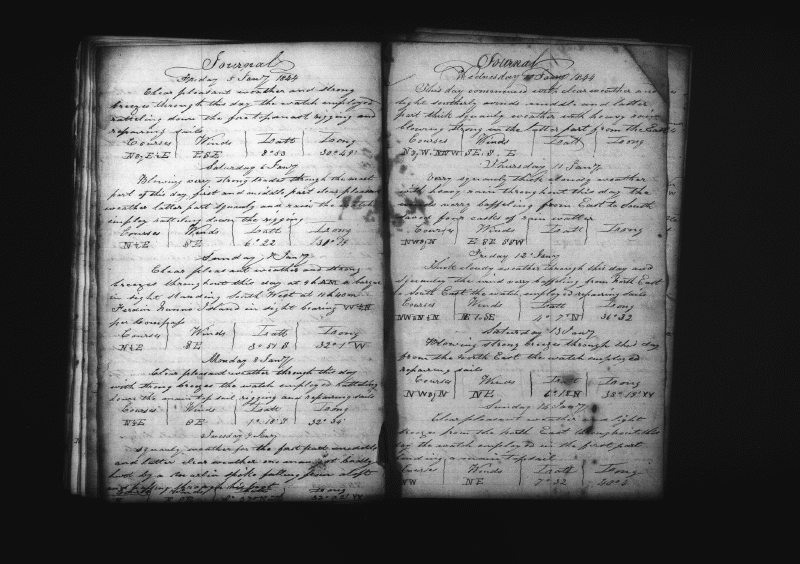 Journal
Friday 5 Jany 1844
Clear pleasant weather and strong
breezes through this day the watch employed
rattling down the foretopmast rigging and
repairing sails
Courses Winds Latt Long
E&E ESE 8°53 30°48'
Saturday 6 Jany
Blowing very strong trades through the most
part of this day first and middle part clear pleasant
weather latter part squaly and rain the watch
employ rattling down the rigging
Courses Winds Latt Long
N&E SE 6°22
Sunday 7 Jany
Clear pleasant weather and strong
breezes throughout this day at 9 h AM a barque
in sight standing South West at 11 h 40 m
Island in sight bearing
per Compass
Courses Winds Latt Long
N&E SE 3°51 S 32°1 W
Monday 8 Jany
Clear pleasant weather through this day
with strong breezes the watch employed rattling
down the main top sail rigging and repairing sails
Courses Winds Latt Long
N&E SE 1°18 S 32°36'
Tuesday 9 Jany
Squaly weather for the first part middle
and latter clear weather one man got badly
hurt by a marlin spike falling from aloft
and passing through his foot
Journal
Wednesday 10 Jany 1844
This day commenced with clear weather and
light southerly winds middle and latter
part thick squaly weather with heavy rain
blowing strong in the latter part from the East
Courses Winds Latt Long
Thursday 11 Jany
Very squaly thick cloudy weather
with heavy rain throughout this day the
wind varry baffeling from East to South
saved four casks of rain watter
Courses Winds Latt Long
E SE SSW
Friday 12 Jany
Thick cloudy weather through this day and
squaly the wind very baffeling from North East
to South East the watch employed repairing sails
Courses Winds Latt Long
4°7 N 36°32
Saturday 13 Jany
Blowing strong breezes through this day
from the North East the watch employed
repairing sails
Courses Winds Latt Long
NE 6°18 N 38°18' W
Sunday Jany
Clear pleasant weather and light
breezes from the North East throughout this
day the watch employed in the first part
bending a main topsail
Courses Winds Latt Long
NW NE 7°32 40°4